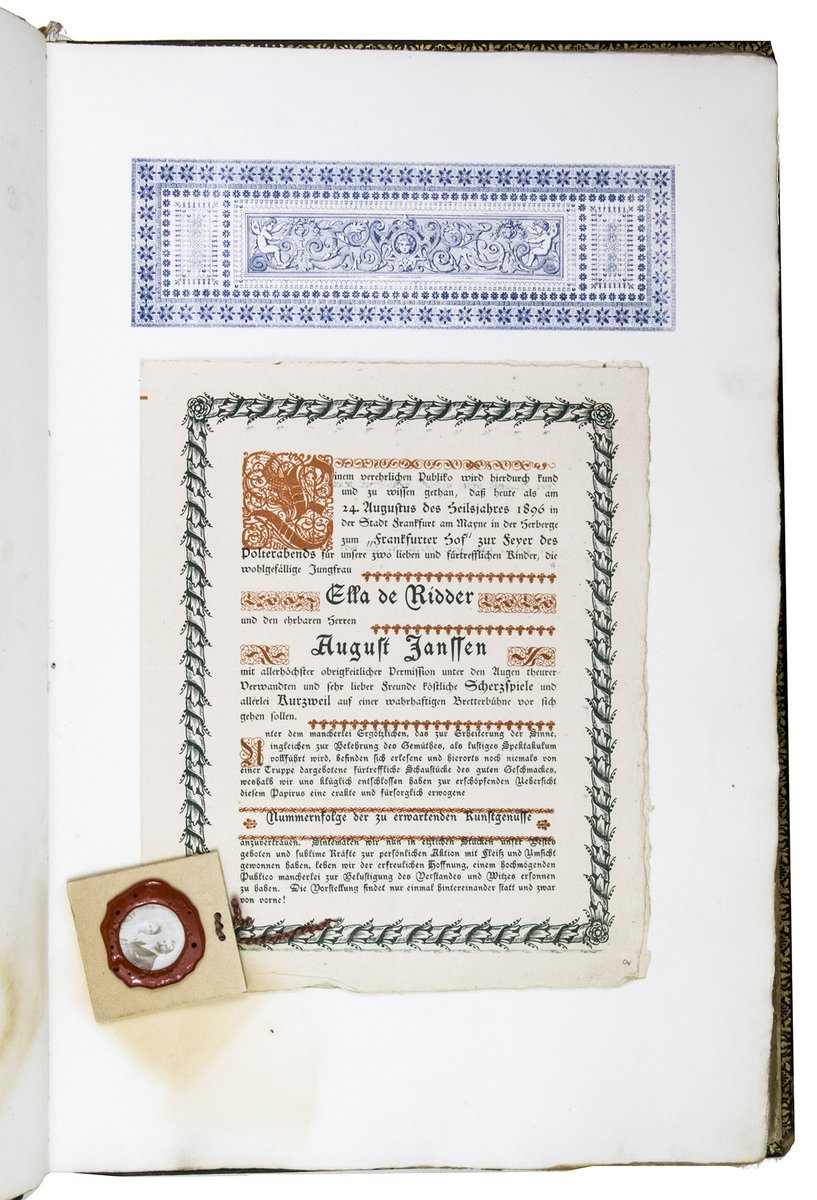 Einem verehrlichen Publiko wird hierdurch kund
und zu wissen gethan, daß heute als am
24. Augustus des Heilsjahres 1896 in
der Stadt Frankfurt am Mayne in der Herberge
zum „Frankfurter Hof“ zur Feyer des
Polterabends für unsere zwo lieben und fürtrefflichen Kinder, die
wohlgefällige Jungfrau
Ella de Ridder
und den ehrbaren Herren
August Janssen
mit allerhöchster obrigkeitlicher Permission unter den Augen theurer
Verwandten und sehr lieber Freunde köstliche Scherzspiele und
allerlei Kurzweil auf einer wahrhaftigen Bretterbühne vor sich
gehen sollen.
Unter dem mancherlei Ergötzlichen, das zur Erheiterung der Sinne,
ingleichen zur Belehrung des Gemüthes, als lustiges Spektakulum
vollführt wird, befinden sich erlesene und hierorts noch niemals von
einer Truppe dargebotene fürtreffliche Schaustücke des guten Geschmackes,
weshalb wir uns klüglich entschlossen haben zur erschöpfenden Uebersicht
diesem Papirus eine exakte und fürsorglich erwogene
Nummernfolge der zu erwartenden Kunstgenüsse
anzuvertrauen. Sintemalen wir nun in etzlichen Stücken unser Bestes
geboten und sublime Kräfte zur persönlichen Aktion mit Fleiß und Umsicht
gewonnen haben, leben wir der erfreulichen Hoffnung, einem hochmögenden
Publico mancherlei zur Belustigung des Verstandes und Witzes ersonnen
zu haben. Die Vorstellung findet nur einmal hintereinander statt und zwar
von vorne!